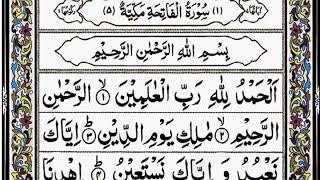 (١) سُوْرَةُ الْفَاتِحَةِ مَكِّيَّةٌ (٥)
بِسْمِ اللّٰهِ الرَّحْمٰنِ الرَّحِيْمِ
اَلْحَمْدُ لِلّٰهِ رَبِّ الْعٰلَمِيْنَ ۝١ الرَّحْمٰنِ
الرَّحِيْمِ ۝٢ مٰلِكِ يَوْمِ الدِّيْنِ ۝٣ اِيَّاكَ
نَعْبُدُ وَ اِيَّاكَ نَسْتَعِيْنُ ۝٤ اِهْدِنَا